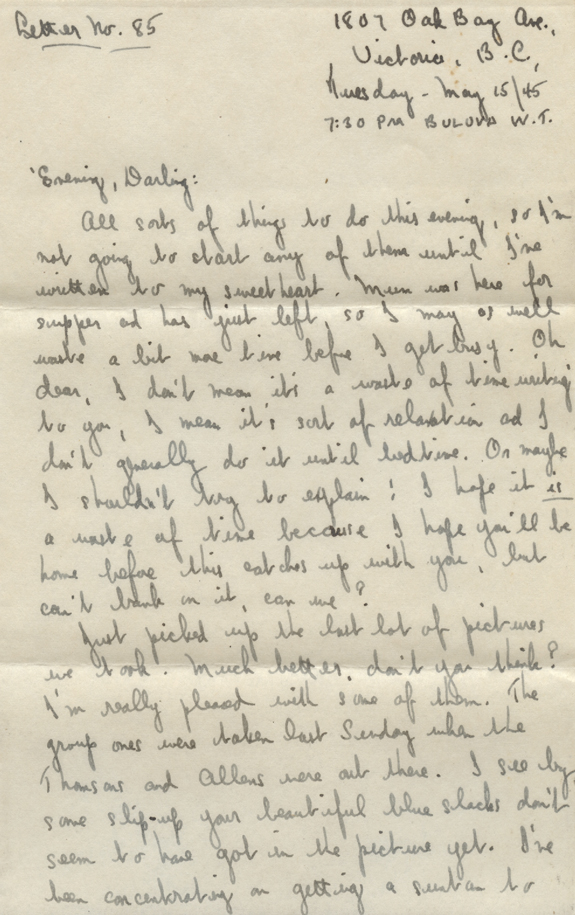 Letter No. 85
1807 Oak Bay Ave.,
Victoria, B.C.,
Tuesday - May 15/45
7:30 PM BULOVA W.T.
'Evening, Darling:
All sorts of things to do this evening, so I'm
not going to start any of them until I've
written to my sweetheart. Mum was here for
supper ad has just left, so I may as well
waste a bit more time before I get busy. Oh
dear, I don't mean it's a waste of time writing
to you, I mean it's sort of relaxation ad I
don't generally do it until bedtime. Or maybe
I shouldn't try to explain! I hope it is
a waste of time because I hope you'll be
home before this catches up with you, but
can't bank on it, can we?
Just picked up the last lot of pictures
we took. Much better, don't you think?
I'm really pleased with some of them. The
group ones were taken last Sunday when the
Thomsons and Allens were out there. I see by
some slip-up your beautiful blue slacks don't
seem to have got in the picture yet. I've
been concentrating on getting a suntan to